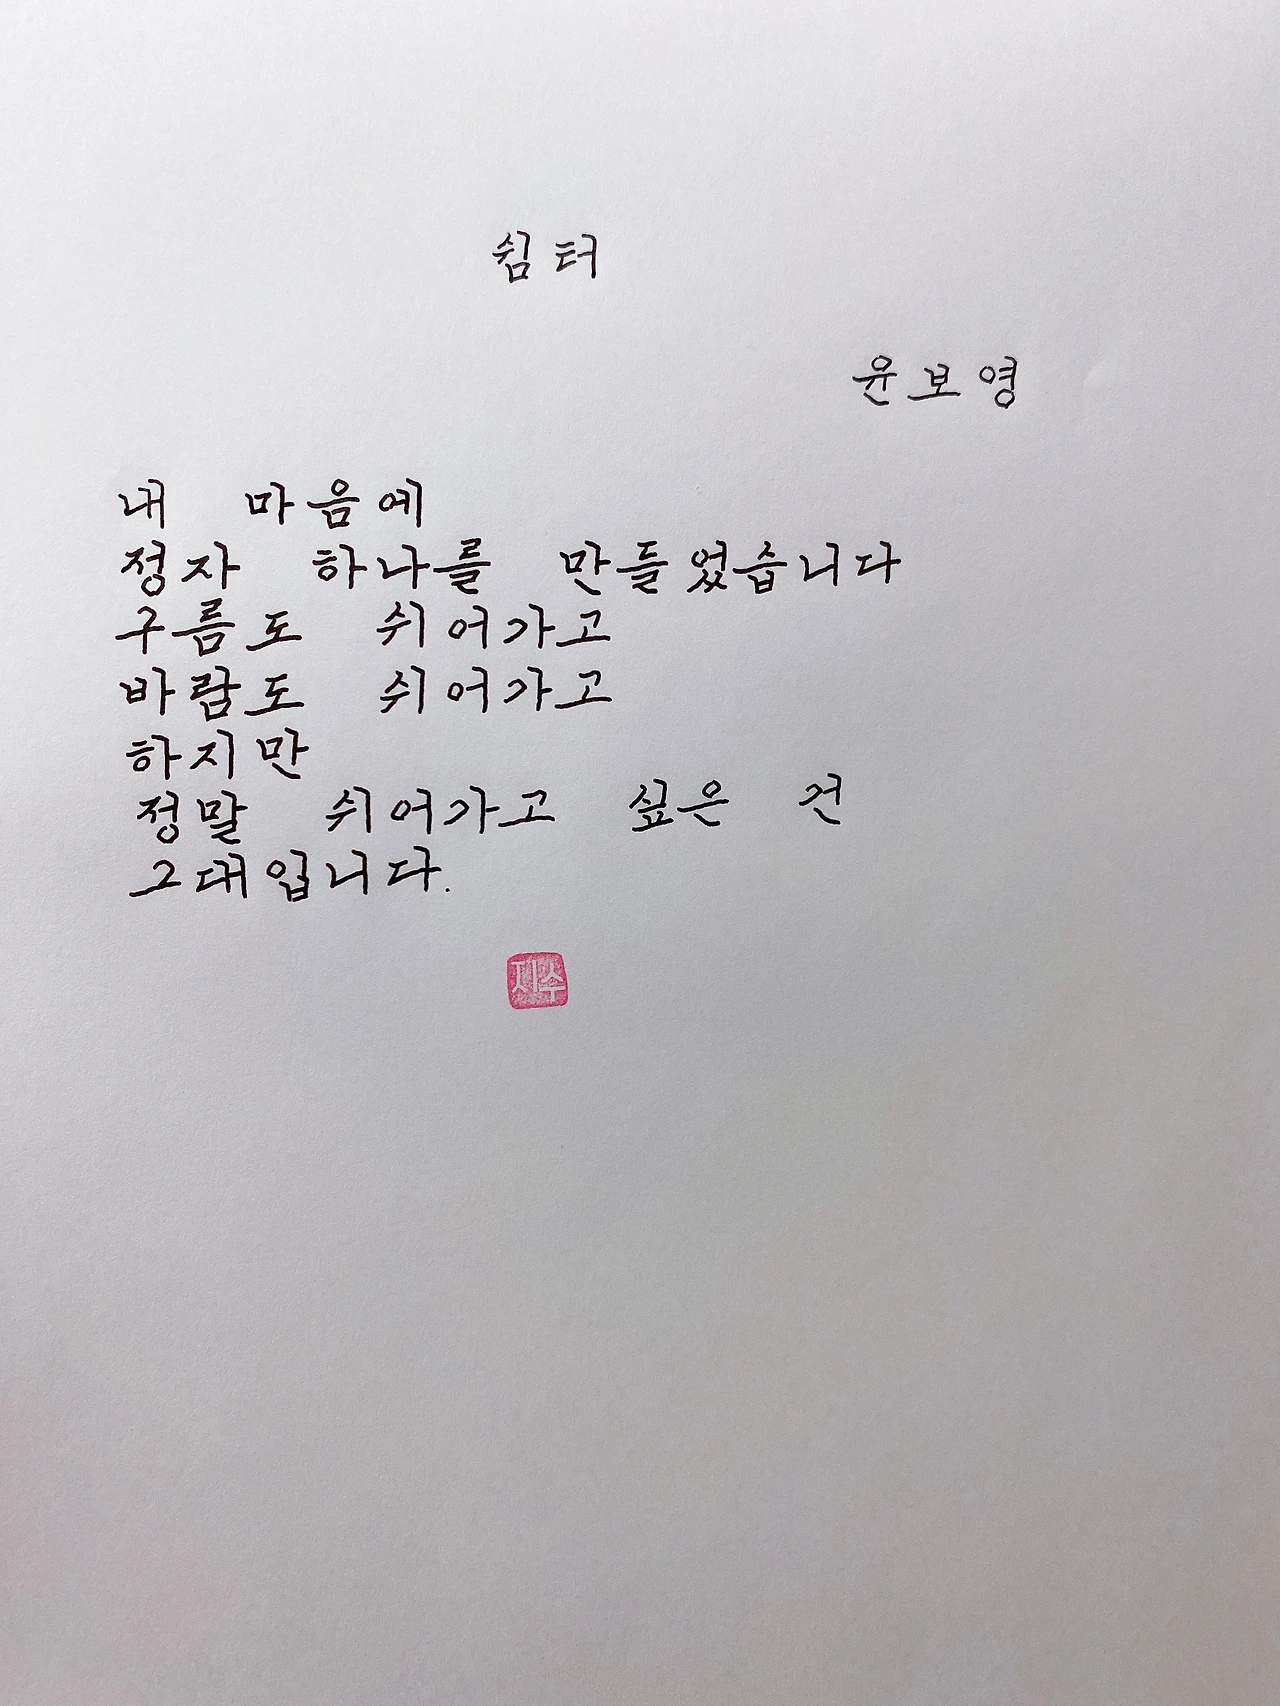 쉼터
윤보영
내 마음에
정자 하나를 만들었습니다
구름도 쉬어가고
바람도 쉬어가고
하지만
정말 쉬어가고 싶은 건
그대입니다.
지수